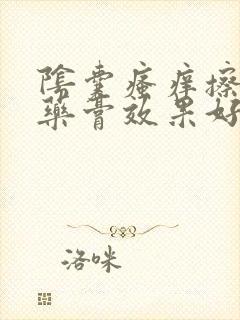 陰囊瘙痒擦
藥膏效果好
洛咪